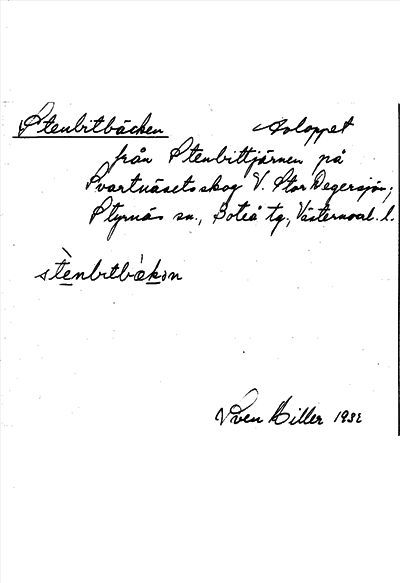 Stenbitbäcken Avloppet
från Stenbittjärnen på
Svartnäsets skog V. Stor Degersjön;
Styrnäs sn., Boteå tg., Västernorl. l.
stènbɩtbὰkən
Sven Hiller 1932